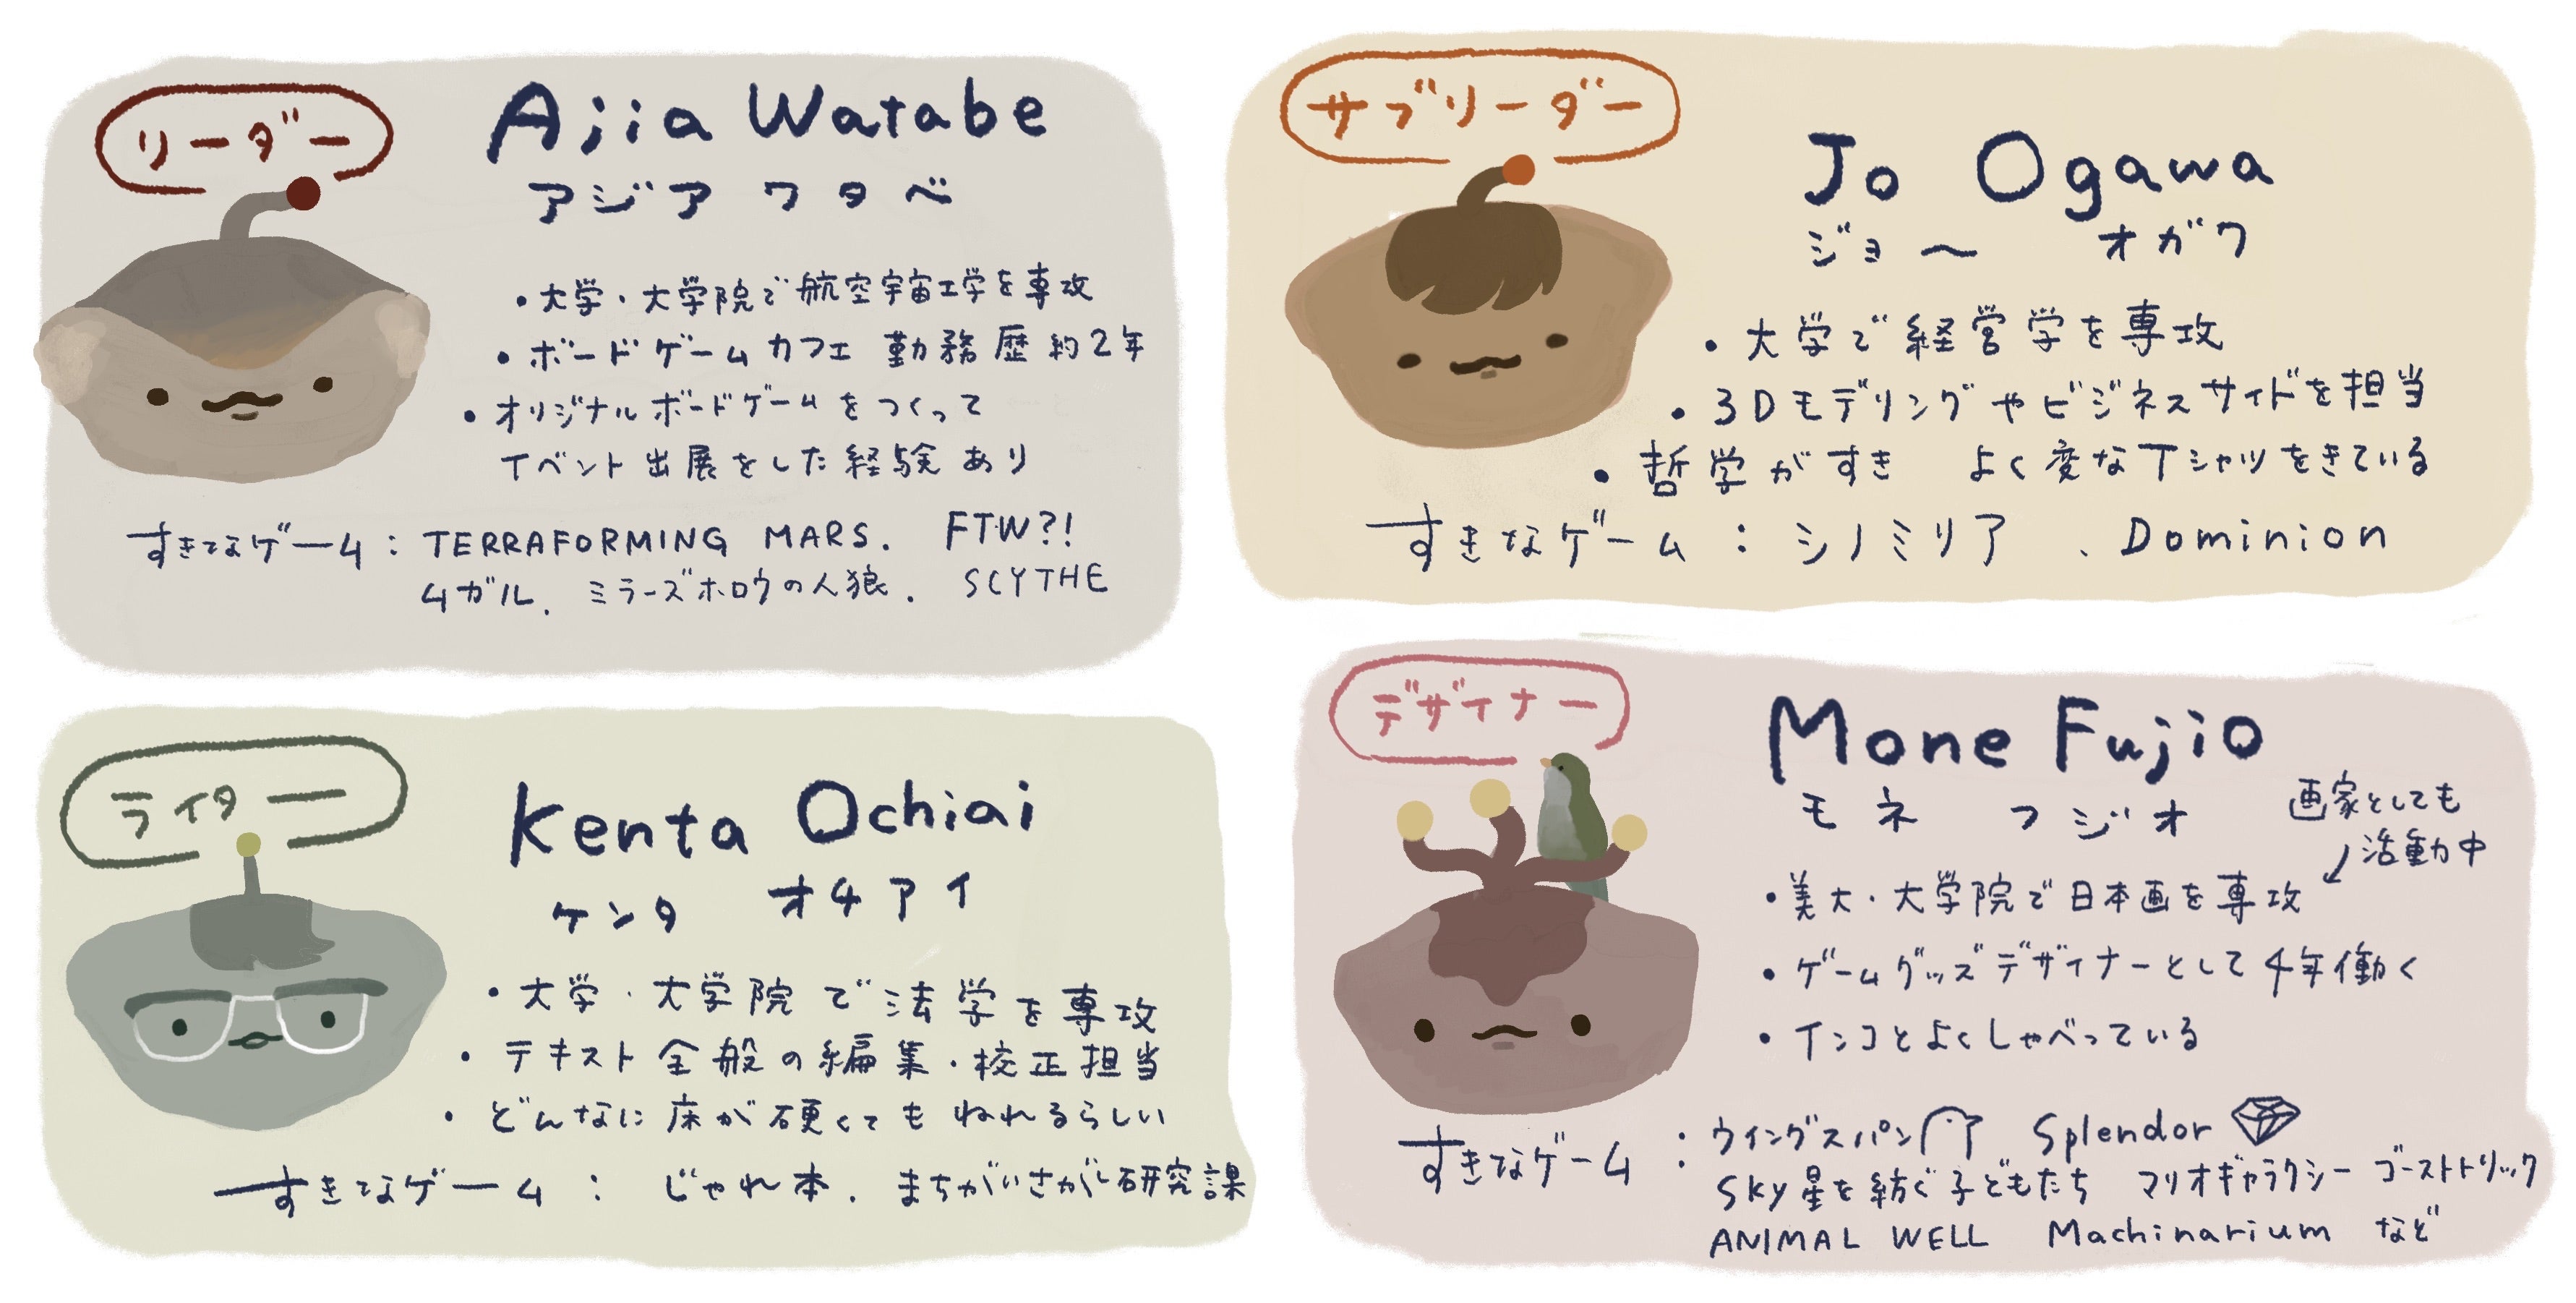 リーダー
Ajia Watabe
アジア ワタベ
・大学・大学院で航空宇宙工学を専攻
・ボードゲームカフェ 勤務歴 約2年
・オリジナルボードゲームをつくって
イベント出展をした経験あり
すきなゲーム：TERRAFORMING MARS. FTW?!
ムガル、ミラーズホロウの人狼. SCYTHE
サブリーダー
Jo Ogawa
ジョ～ オガワ
・大学で経営学を専攻
・3Dモデリングやビジネスサイドを担当
・哲学がすき よく変なTシャツをきている
すきなゲーム：シノミリア、Dominion
ライター
Kenta Ochiai
ケンタ オチアイ
・大学・大学院で法学を専攻
・テキスト全般の編集・校正担当
・どんなに床が硬くてもねれるらしい
すきなゲーム：じゃれ本. まちがいさがし研究課
デザイナー
Mone Fujio
モネ フジオ
画家としても
活動中
・美大・大学院で日本画を専攻
・ゲームグッズデザイナーとして4年働く
・インコとよくしゃべっている
すきなゲーム：ウイングスパン Splendor
Sky星を紡ぐ子どもたち マリオギャラクシー ゴーストトリック
ANIMAL WELL Machinarium など